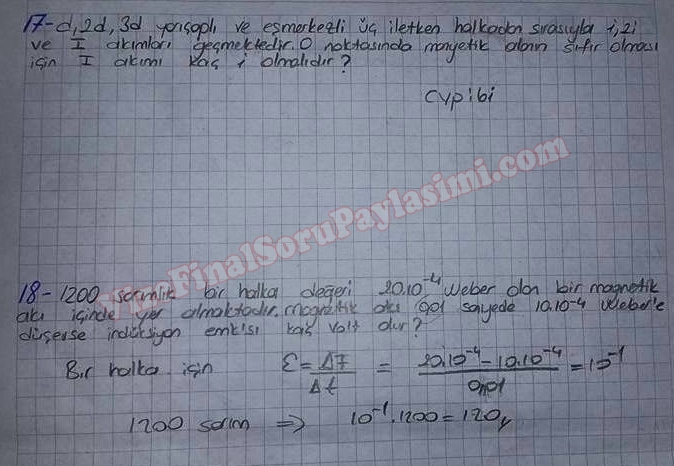 17-d,2d,3d yarıçaplı ve eşmerkezli üç iletken halkadan sırasıyla i,2i
ve I akımları geçmektedir. O noktasında manyetik alanın sıfır olması
için I akımı kaç i olmalıdır?
Cvp ibi
www.FinalSoruPaylasimi.com
18-1200 sarımlık bir halka değeri 20.10⁻⁴ Weber olan bir magnetik
akı içinde yer almaktadır. magnetik akı 0,01 saniyede 10.10⁻⁴ Weber'e
düşerse indüksiyon emk'sı kaç volt dur?
Bir halka için ε = ΔF / Δt = 20.10⁻⁴ - 10.10⁻⁴ / 0,01 = 10⁻¹
1200 sarım ⇒ 10⁻¹.1200 = 120v